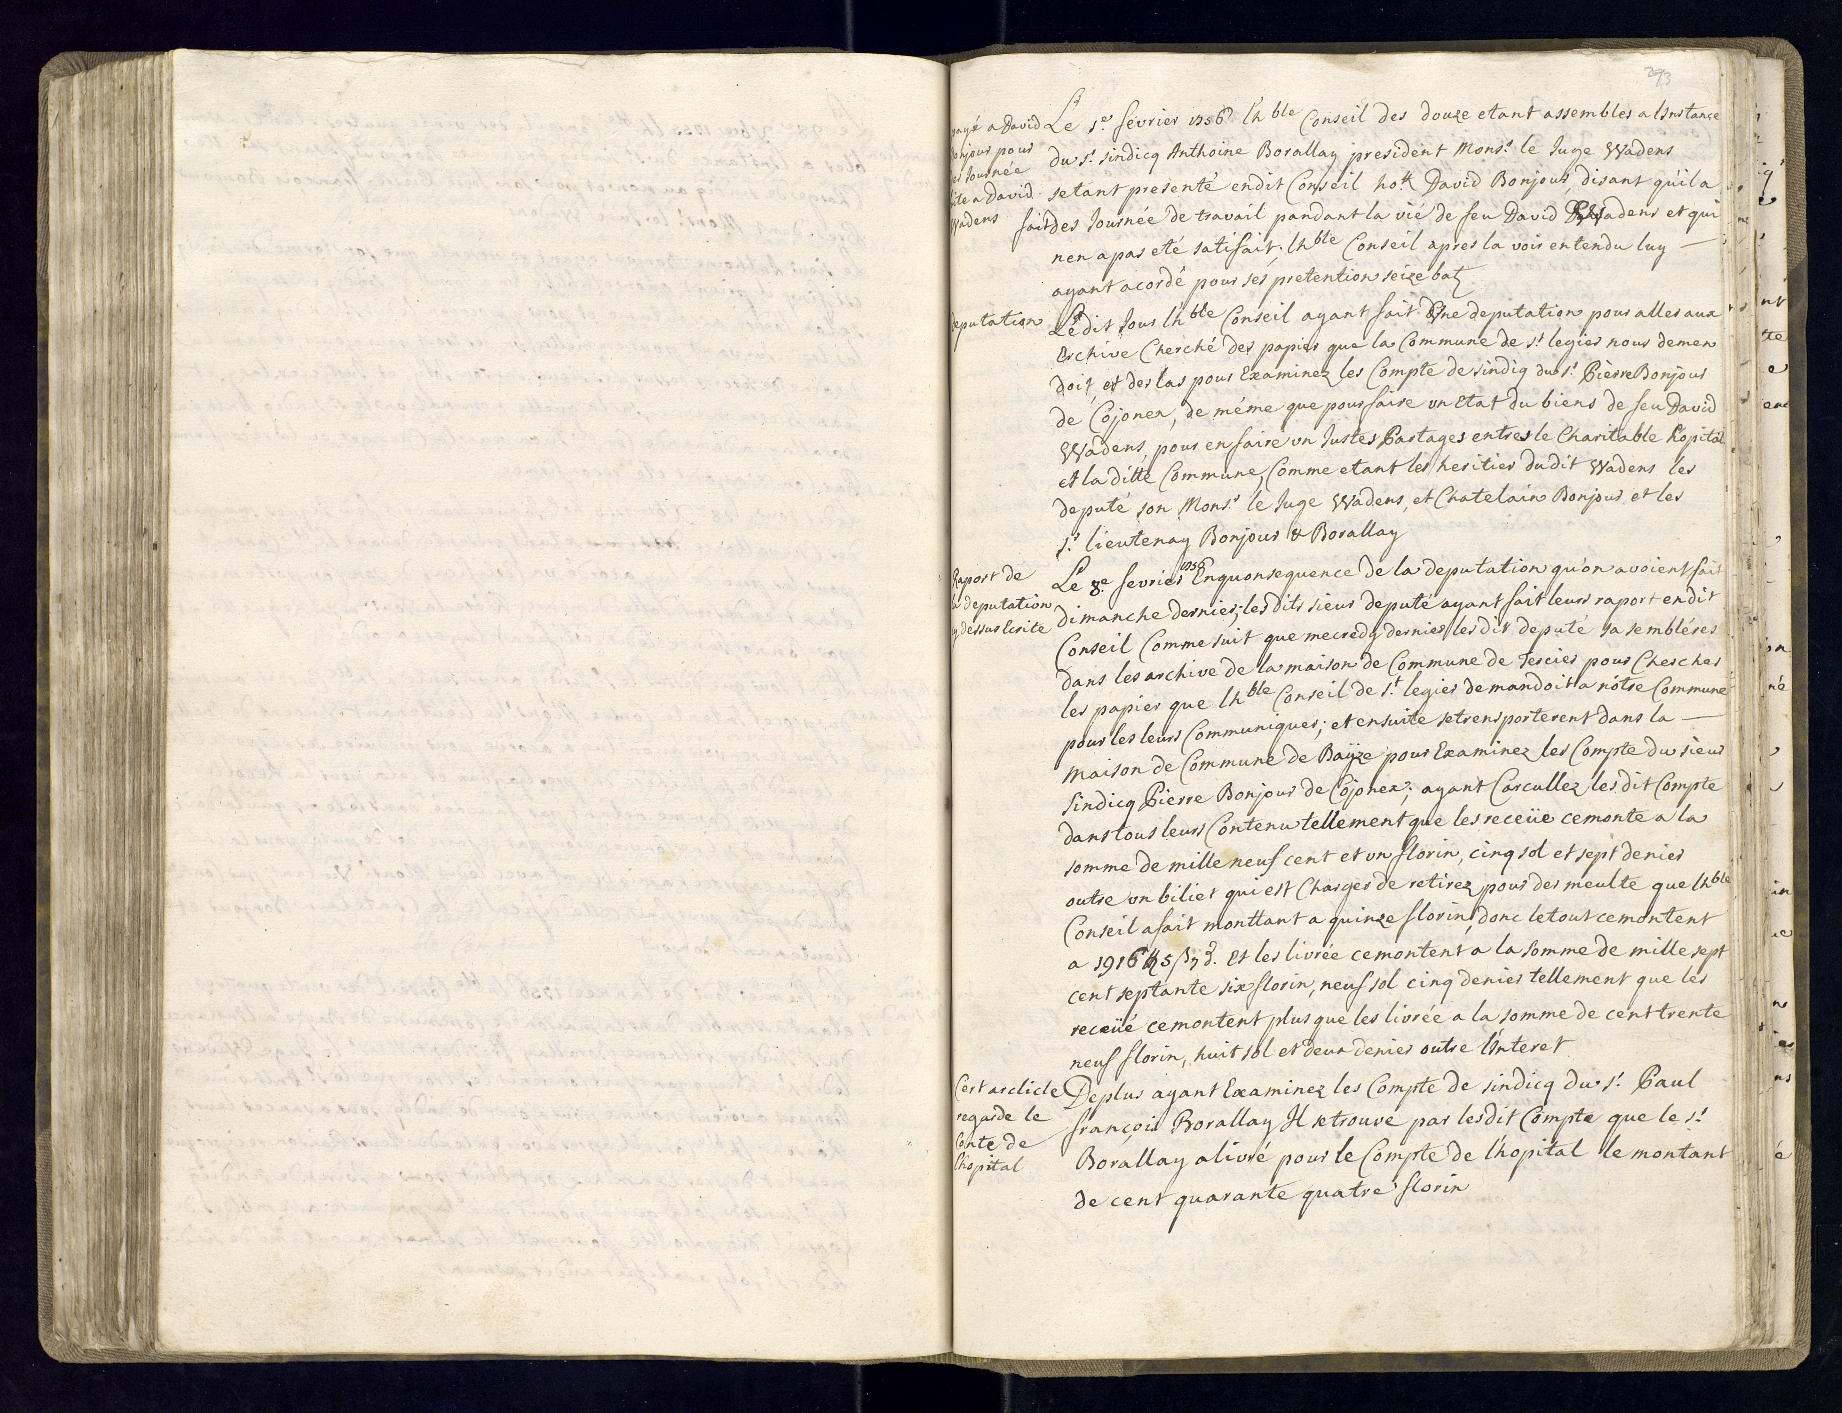 273
payé a David
Bonjour pour
des Journée
faite a David
Wadens
Le 1.er fevrier 1756 lh.ble Conseil des douze etant assembles a lInstance
du s.r sindicq Anthoine Borallay president Mons.r le Juge Wadens
setant presenté endit Conseil hon. David Bonjour, disant quil a
fait des Journée de travail pandant la vié de feu David Wadens et qui
nen apas eté satifait, lh.ble Conseil apres la voir entendu luy —
ayant acordé pour ses pretention seize batz
deputation
Ledit Jour lh.ble Conseil ayant fait Une deputation pour aller aux
Erchive Cherché des papier que la Commune de s.t legier nous demen
doit, et der las pour Examinez les Compte de sindiq du s.r Pierre Bonjour
de Cojonex, de méme que pour faire un Etat du biens de feu David
Wadens, pour en faire un Justes Partages entres le Charitable hopital
et la ditte Commune, Comme etant les heritier dudit Wadens les
deputé son Mons.r le Juge Wadens, et Chatelain Bonjour et les
s.r lieutenay Bonjour & Borallay
Raport de
la deputation
cy dessus Ecrite
Le 8.e fevrier 1756 Enquonsequence de la deputation qu'on avoient fait
dimanche dernier; les dits sieur deputé ayant fait leurs raport en dit
Conseil Comme suit que mecredy dernier les dit deputé sa sembléres
dans les archive de la maison de Commune de Tercier pour Chercher
les papier que lh.ble Conseil de s.t legier demandoit a nótre Commune
pour les leurs Communiquer; et ensuite se trensporterent dans la —
maison de Commune de Bayze pour Examinez les Compte du sieur
sindicq Pierre Bonjour de Cojonex; ayant Carcullez les dit Compte
dans tous leurs Contenu tellement que les receüe ce monte a la
somme de mille neuf cent et un florin, cinq sol et sept denier
outre un biliet qui est Charger de retirez pour des meulte que lh.ble
Conseil a fait monttant a quinze florin, donc le tout ce montent
a 1916 ff 5 ß 7 d. Et les livrée ce montent a la somme de mille sept
cent septante six florin, neuf sol cinq denier tellement que les
receüé ce montent plus que les livrée a la somme de cent trente
neuf florin, huit sol et deux denier outre lInteret
Cert arclicle
regarde le
Conte de
l'hopital
De plus ayant Examinez les Compte de sindicq du s.r Paul
françois Borallay Il se trouve par les dit Compte que le s.r
Borallay a livré pour le Compte de l'hopital le montant
de cent quarante quatre florin